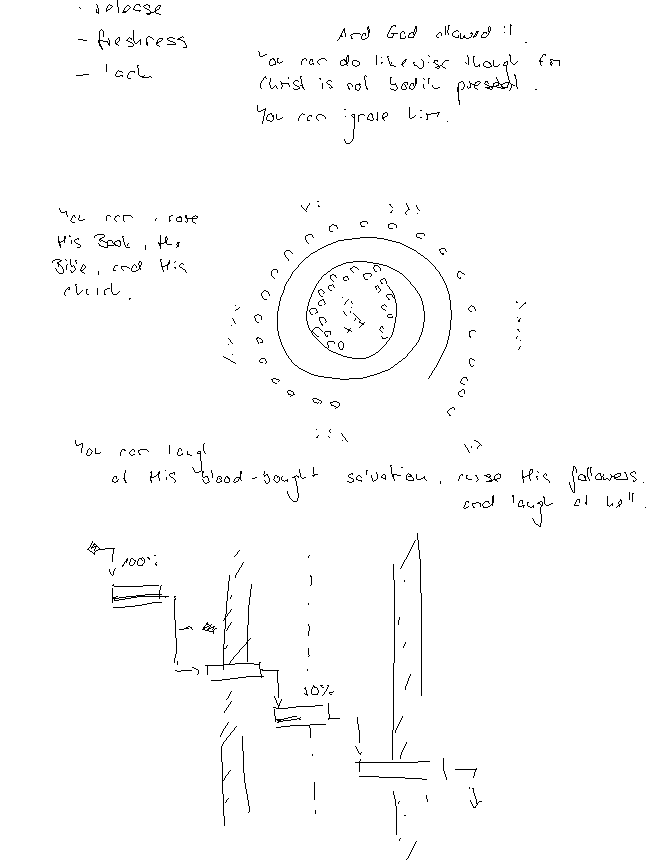 - release
- freshness
- lack
And God allowed it.
You can do likewise though for
Christ is not bodily present.
You can ignore him.
You can ignore
His Book, the
Bible, and His
church.
You can laugh
at His blood-bought salvation, curse His followers,
and laugh at hell.
100%
10%